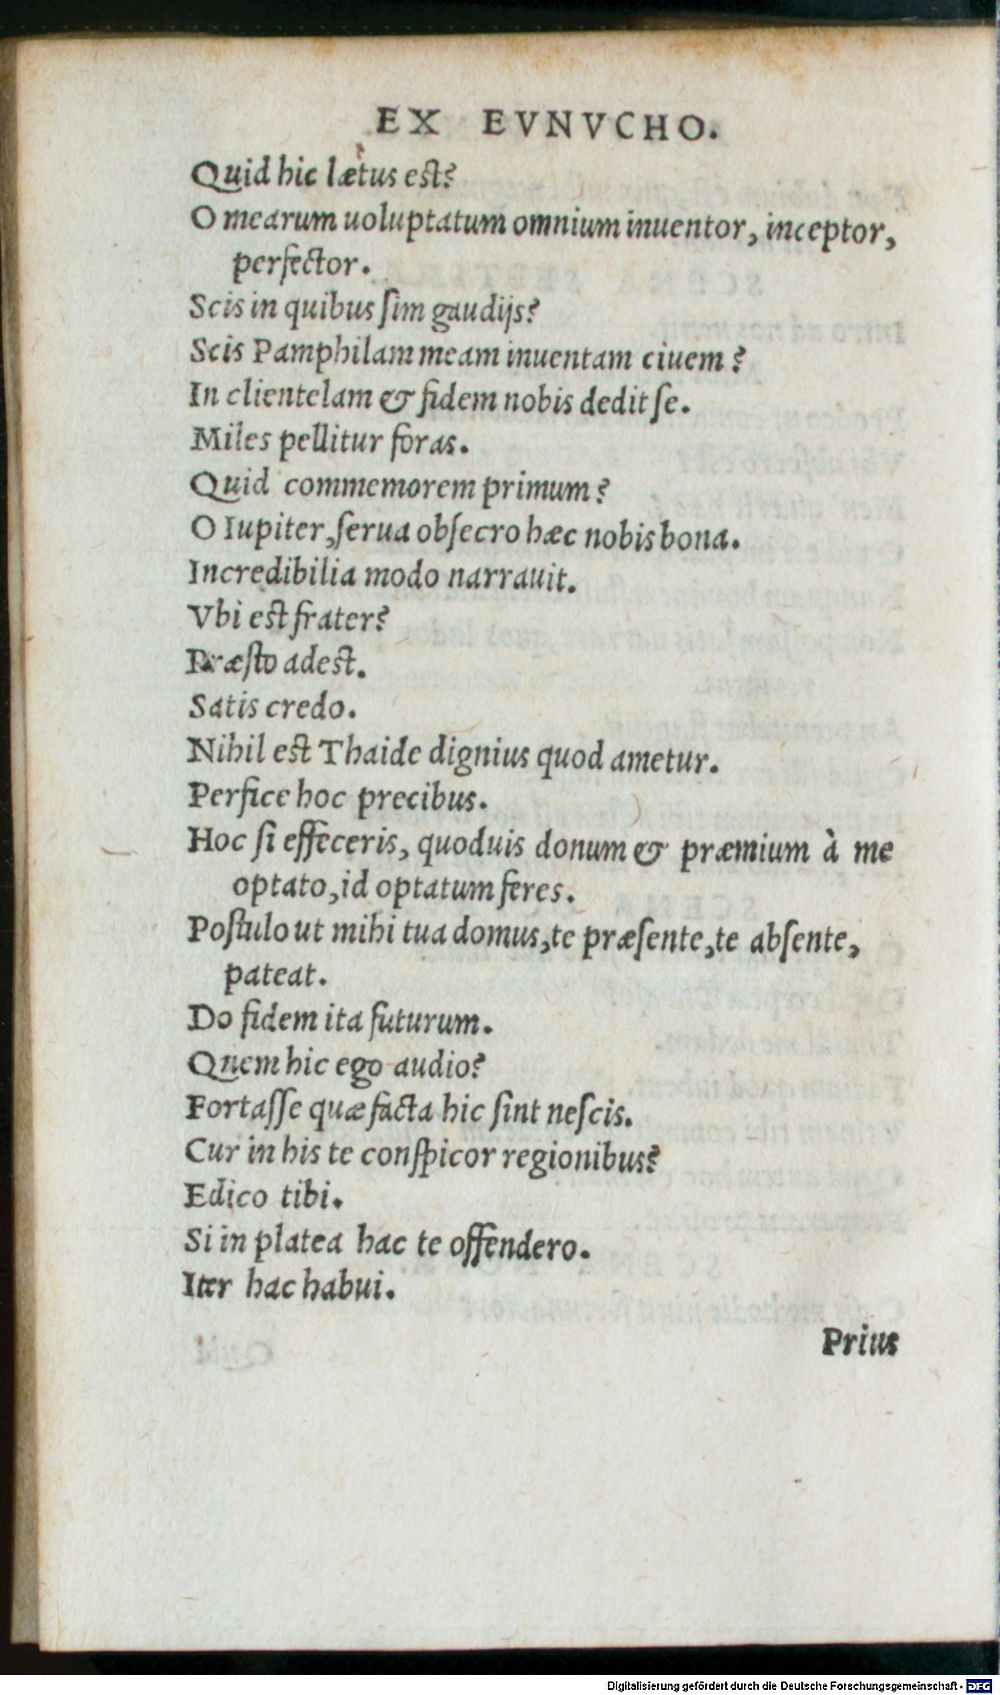 EX EVNVCHO.
Quid hic lætus est?
O mearum uoluptatum omnium inuentor, inceptor,
perfector.
Scis in quibus ſim gaudijs?
Scis Pamphilam meam inuentam ciuem?
In clientelam & fidem nobis dedit ſe.
Miles pellitur foras.
Quid commemorem primum?
O Iupiter, ſerua obſecro hæc nobis bona.
Incredibilia modo narrauit.
Vbi est frater?
Præſto adest.
Satis credo.
Nihil est Thaide dignius quod ametur.
Perfice hoc precibus.
Hoc ſi effeceris, quoduis donum & præmium à me
optato, id optatum feres.
Poſtulo ut mihi tua domus, te præſente, te abſente,
pateat.
Do fidem ita futurum.
Quem hic ego audio?
Fortaſſe quæ facta hic ſint neſcis.
Cur in his te conſpicor regionibus?
Edico tibi.
Si in platea hac te offendero.
Iter hac habui.
Prius
Digitalisierung gefördert durch die Deutsche Forschungsgemeinschaft - DFG